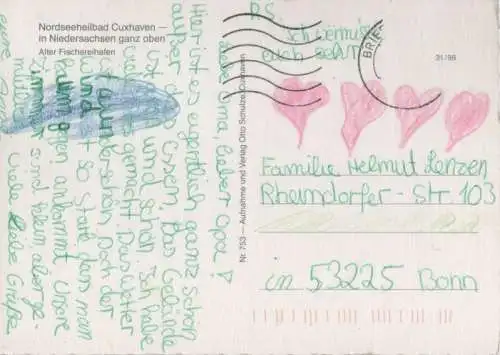 Nordseeheilbad Cuxhaven —
in Niedersachsen ganz oben
Alter Fischereihafen
Liebe Oma, lieber Opa!
Hier ist es eigentlich ganz schön
außer das Essen. Das Gelände
ist und schön. Ich habe
gemacht. Das Wetter
ist wunderschön. Doch der
Wind ist so stark dam man
kaum gegen ankommt. Unsere
Zimmer sind kaum
Viele liebe Grüße
eure
P.S.
Ich vermiss
euch sehr
BRIE
31/98
Nr. 753 — Aufnahme und Verlag Otto Schulze, Cuxhaven
Familie Helmut Lenzen
Rheindorfer-Str. 103
in 53225 Bonn